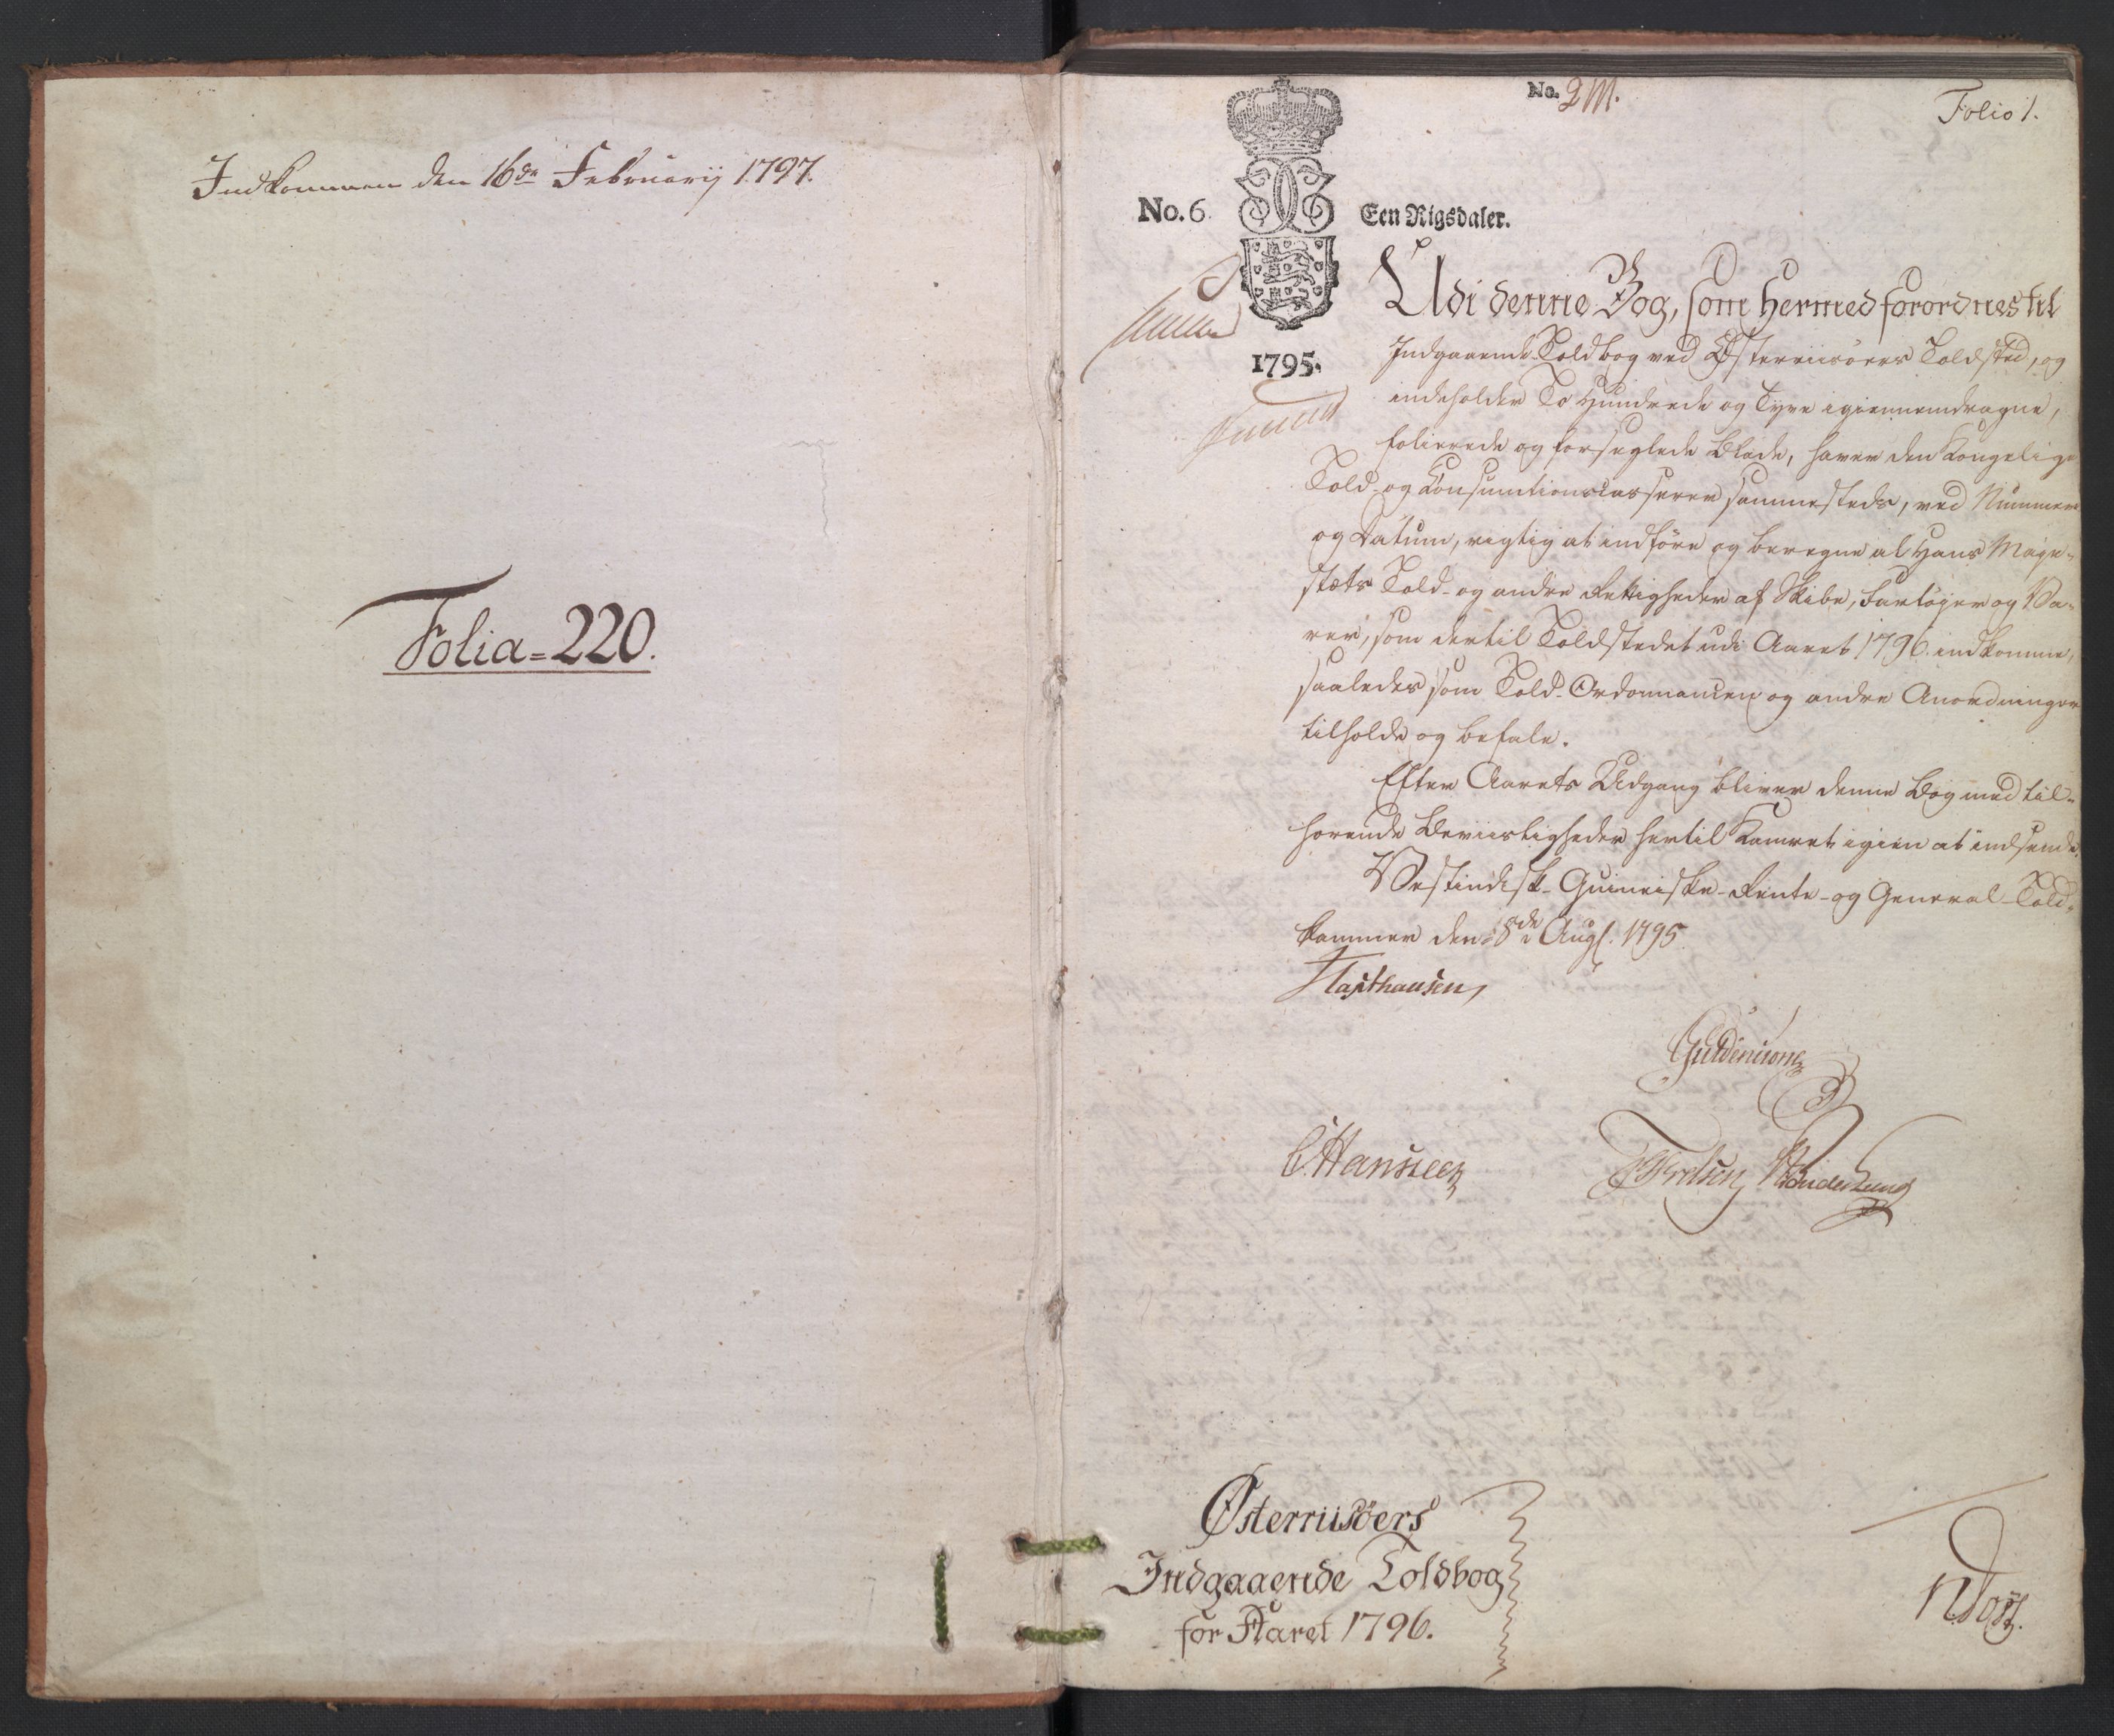 Indkommen den 16de Februarij 1797.
Folia = 220.
No. 2 M.
Folio 1.
No. 6
Een Rigsdaler.
1795.
Udi denne Bog, som hermed forordnes til
Indgaaende Toldbog ved Østerriisöers Toldsted, og
indeholder To Hundrede og Tyve igiennemdragne,
folierede og forseglede Blade, haver den Kongelige
Told- og Consumtionscasserer sammesteds, ved Nummer
og Datum, rigtig at indföre og beregne al Hans Maje-
stæts Told- og andre Rettigheder af Skibe, Fartöjer og Va-
rer, som dertil Toldstedet udi Aaret 1796. indkomme,
saaledes som Told-Ordonnancen og andre Anordninger
tilholde og befale.
Efter Aarets Udgang bliver denne Bog med til-
hörende Beviisligheder hertil Kamret igien at indsende.
Vestindisk-Guineiske-Rente- og General-Told-
kammer den 8de Augt. 1795.
Haxthausen,
Güldencrone
C. Hansteen
Østerriisöers
Indgaaende Toldbog
for Aaret 1796.